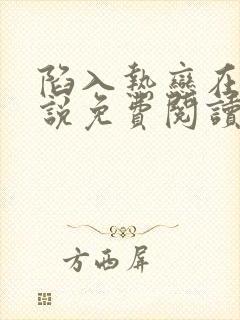 陷入執戀在
說免費閱讀
方西屏